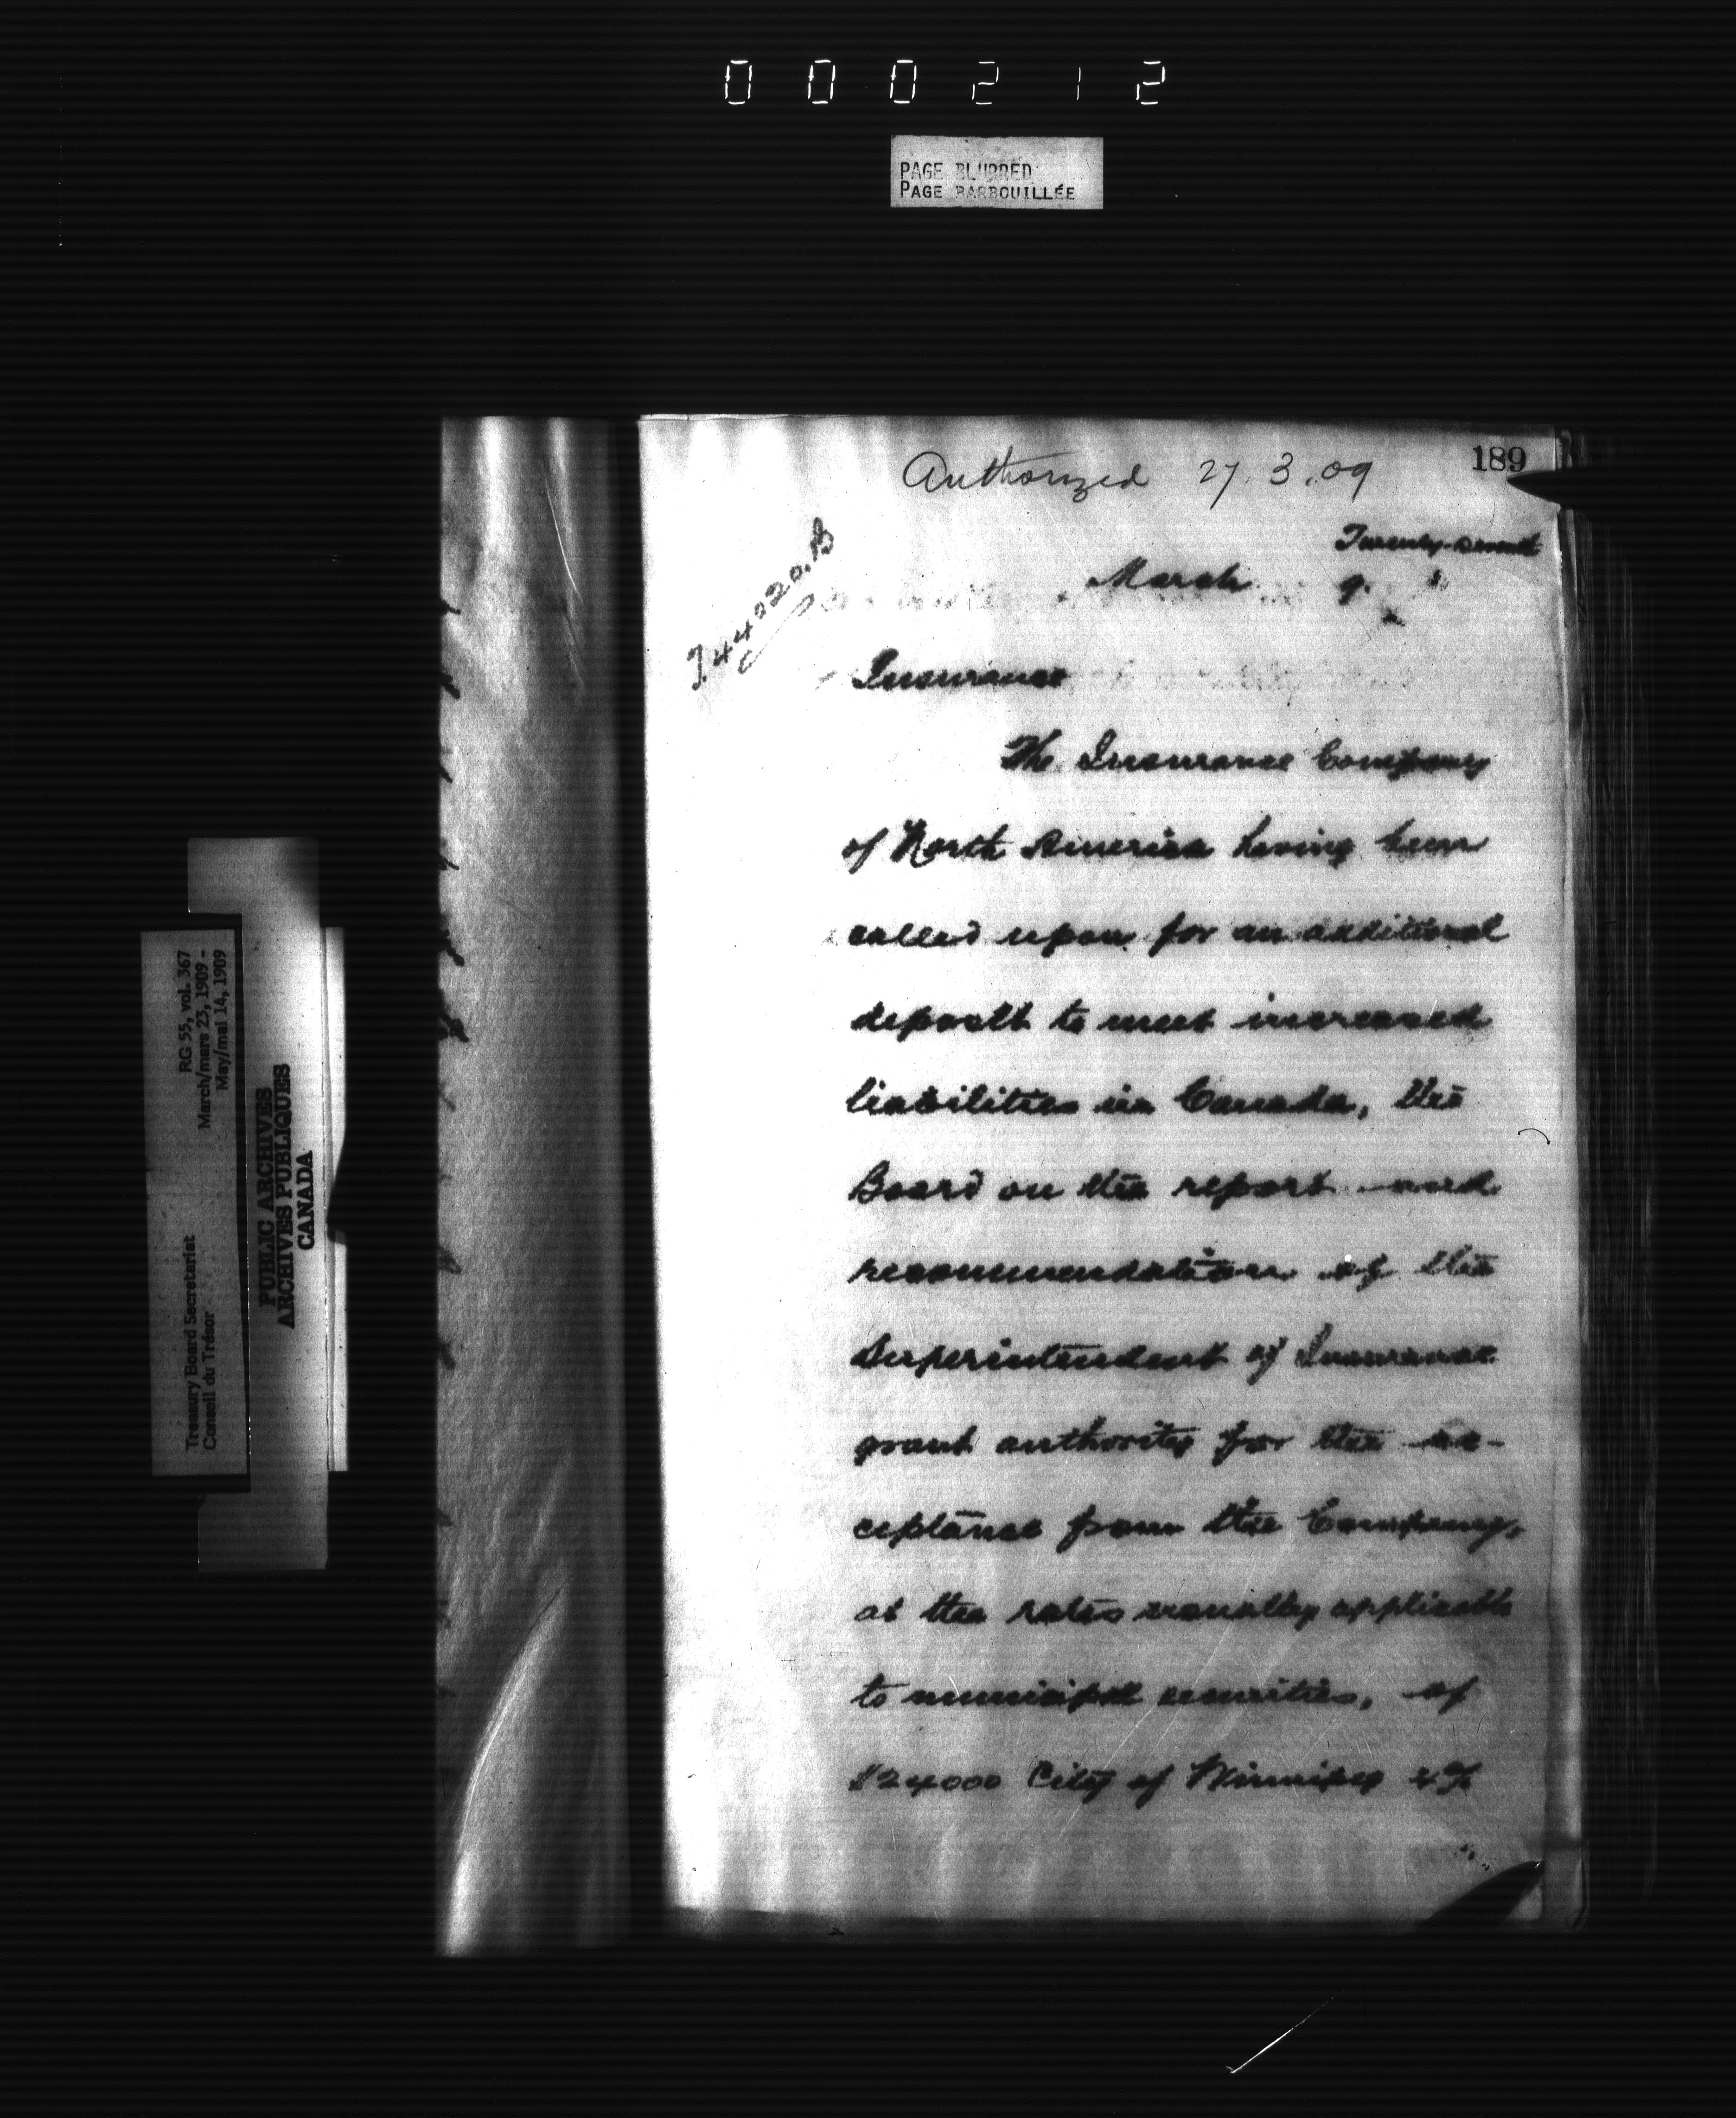 000212
PAGE BLURRED
PAGE BARBOUILLÉE
189
Authorized 27.3.09
Twenty-seventh
March 9.
Insurance
The Insurance Company
of North America having been
called upon for an additional
deposit to meet increased
liabilities in Canada, the
Board on the report and
recommendation of the
Superintendent of Insurance
grant authority for the ac-
ceptance from the Company,
at the rates usually applicable
to municipal securities, of
$24000 City of Winnipeg 4%
Treasury Board Secretariat
Conseil du Trésor
RG 55, vol. 367
March/mars 23, 1909 -
May/mai 14, 1909
PUBLIC ARCHIVES
ARCHIVES PUBLIQUES
CANADA